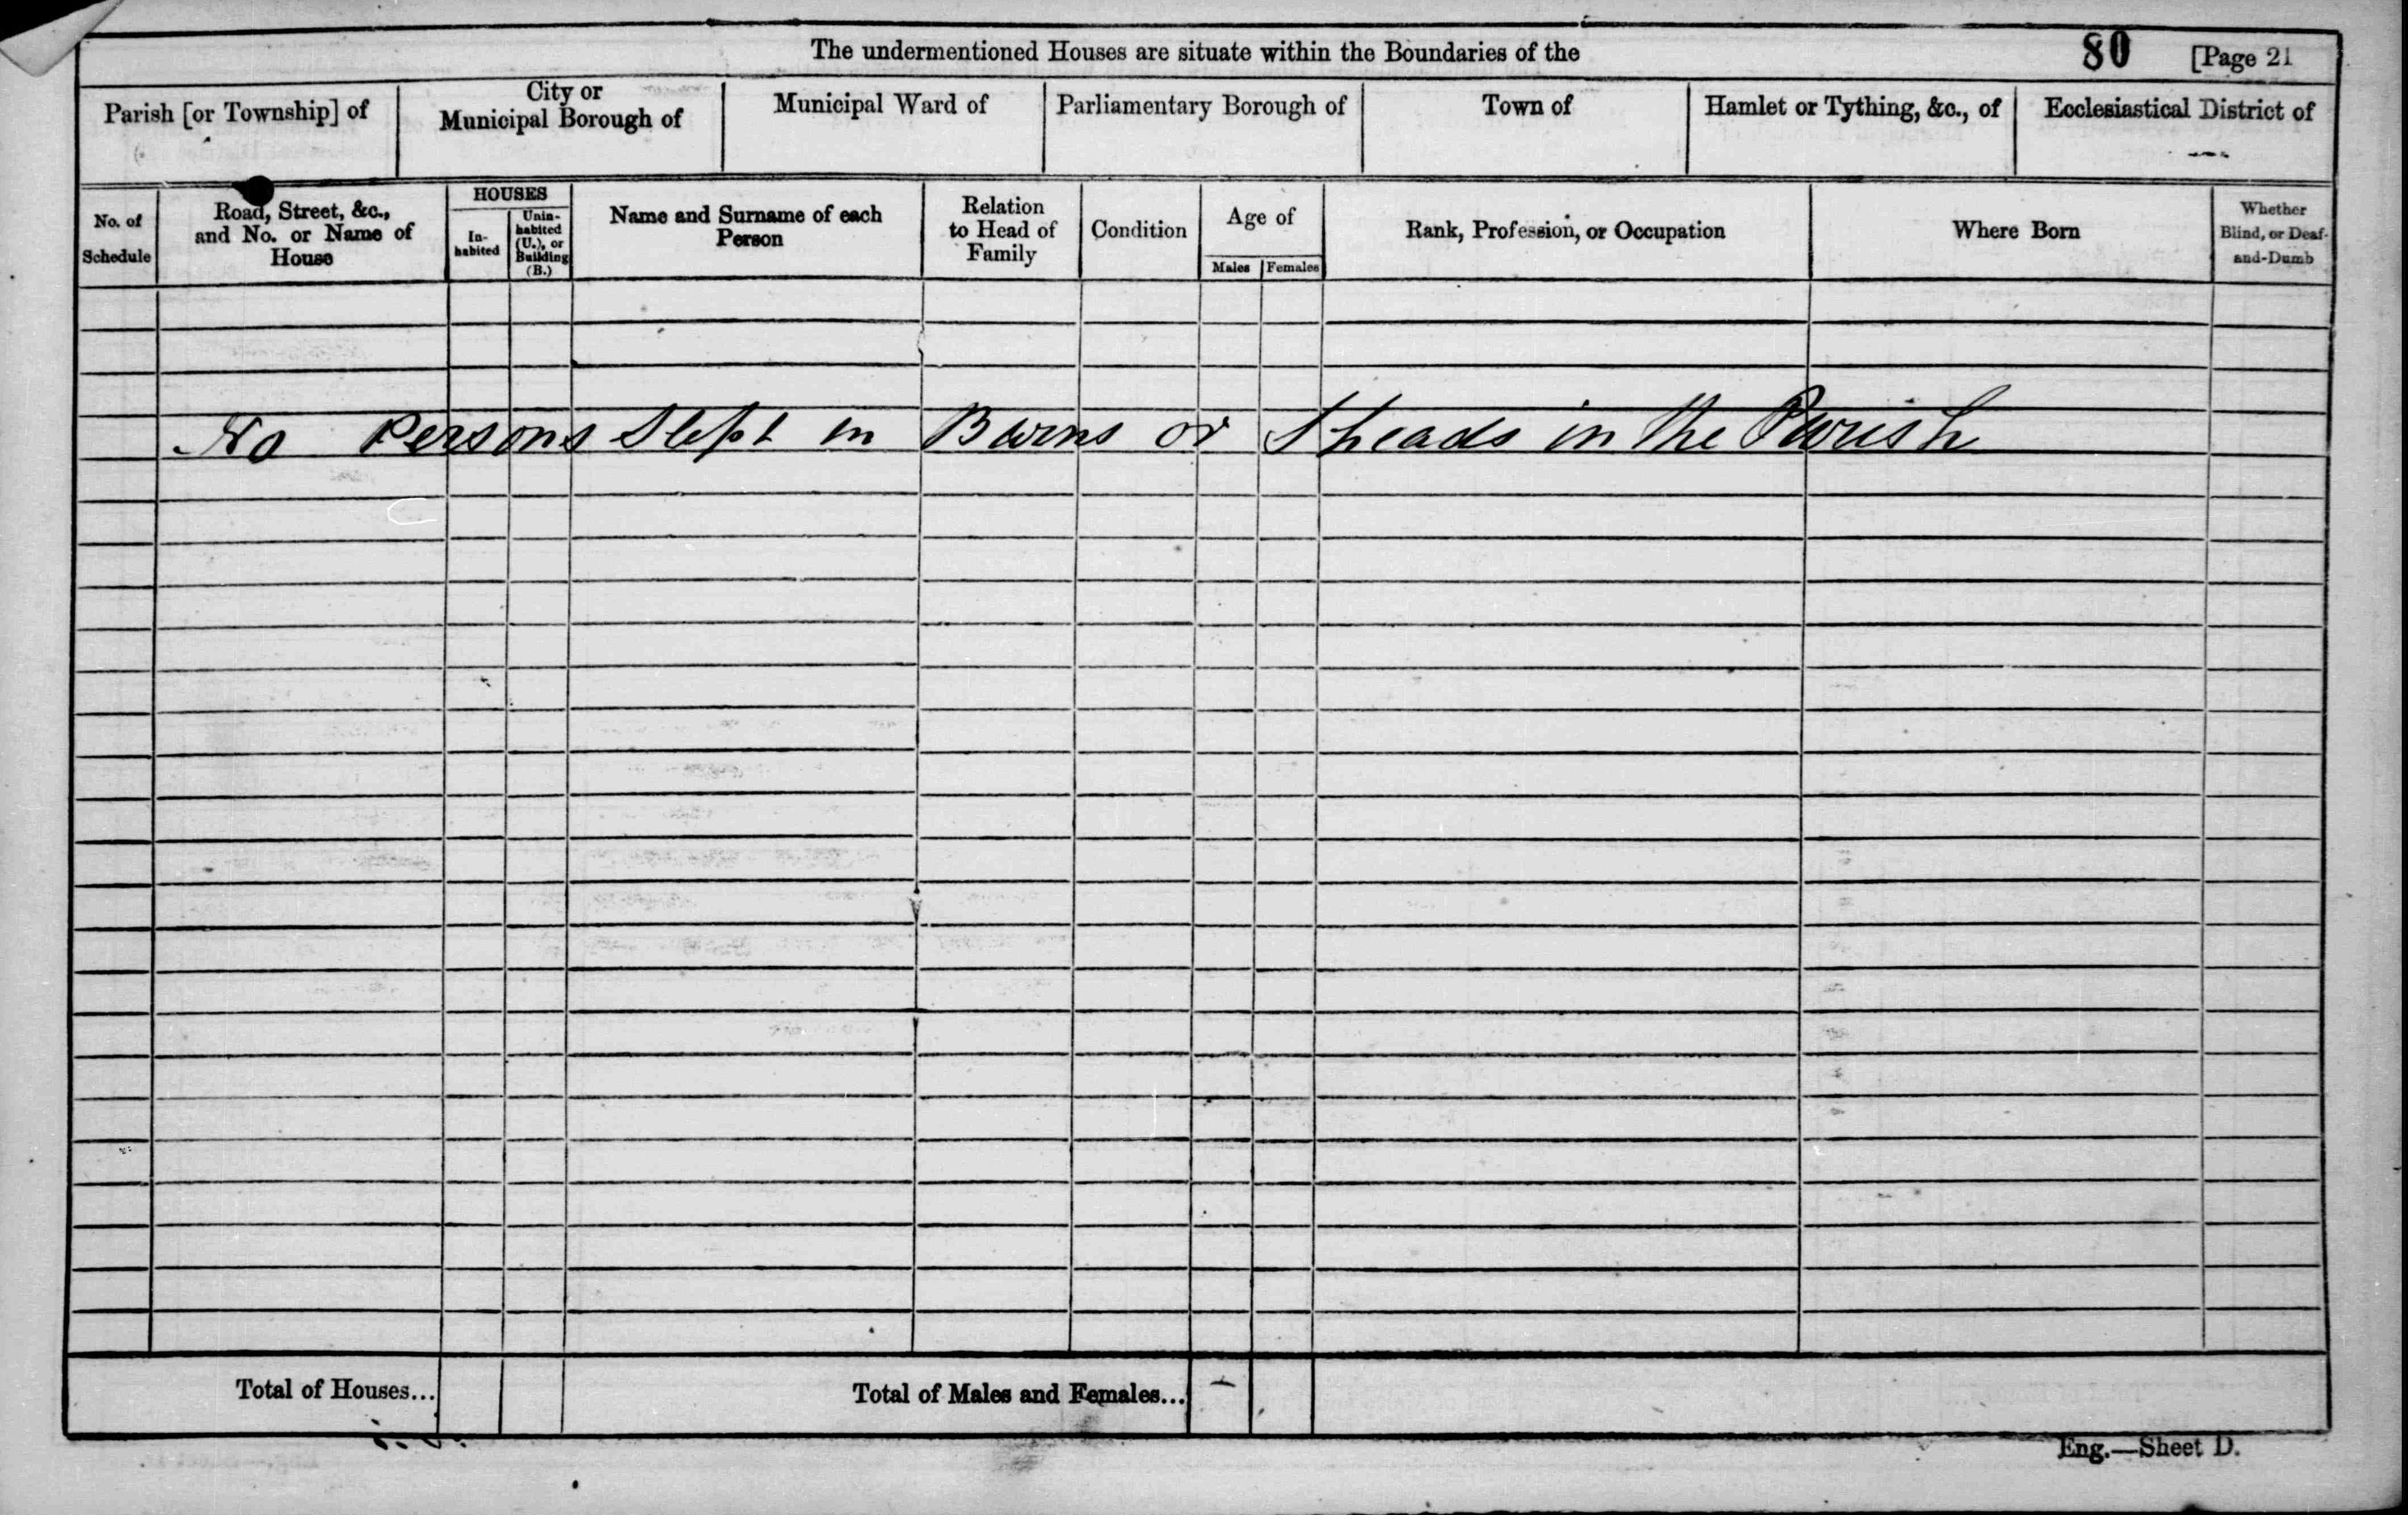 The undermentioned Houses are situate within the Boundaries of the
80
[Page 21
Parish [or Township] of
City or
Municipal Borough of
Municipal Ward of
Parliamentary Borough of
Town of
Hamlet or Tything, &c., of
Ecclesiastical District of
No. of
Schedule
Road, Street, &c.,
and No. or Name of
House
HOUSES
In-
habited
Unin-
habited
(U.), or
Building
(B.)
Name and Surname of each
Person
Relation
to Head of
Family
Condition
Age of
Males
Females
Rank, Profession, or Occupation
Where Born
Whether
Blind, or Deaf-
and-Dumb
No Persons Slept in Barns or Sheads in the Parish
Total of Houses...
Total of Males and Females...
Eng.—Sheet D.